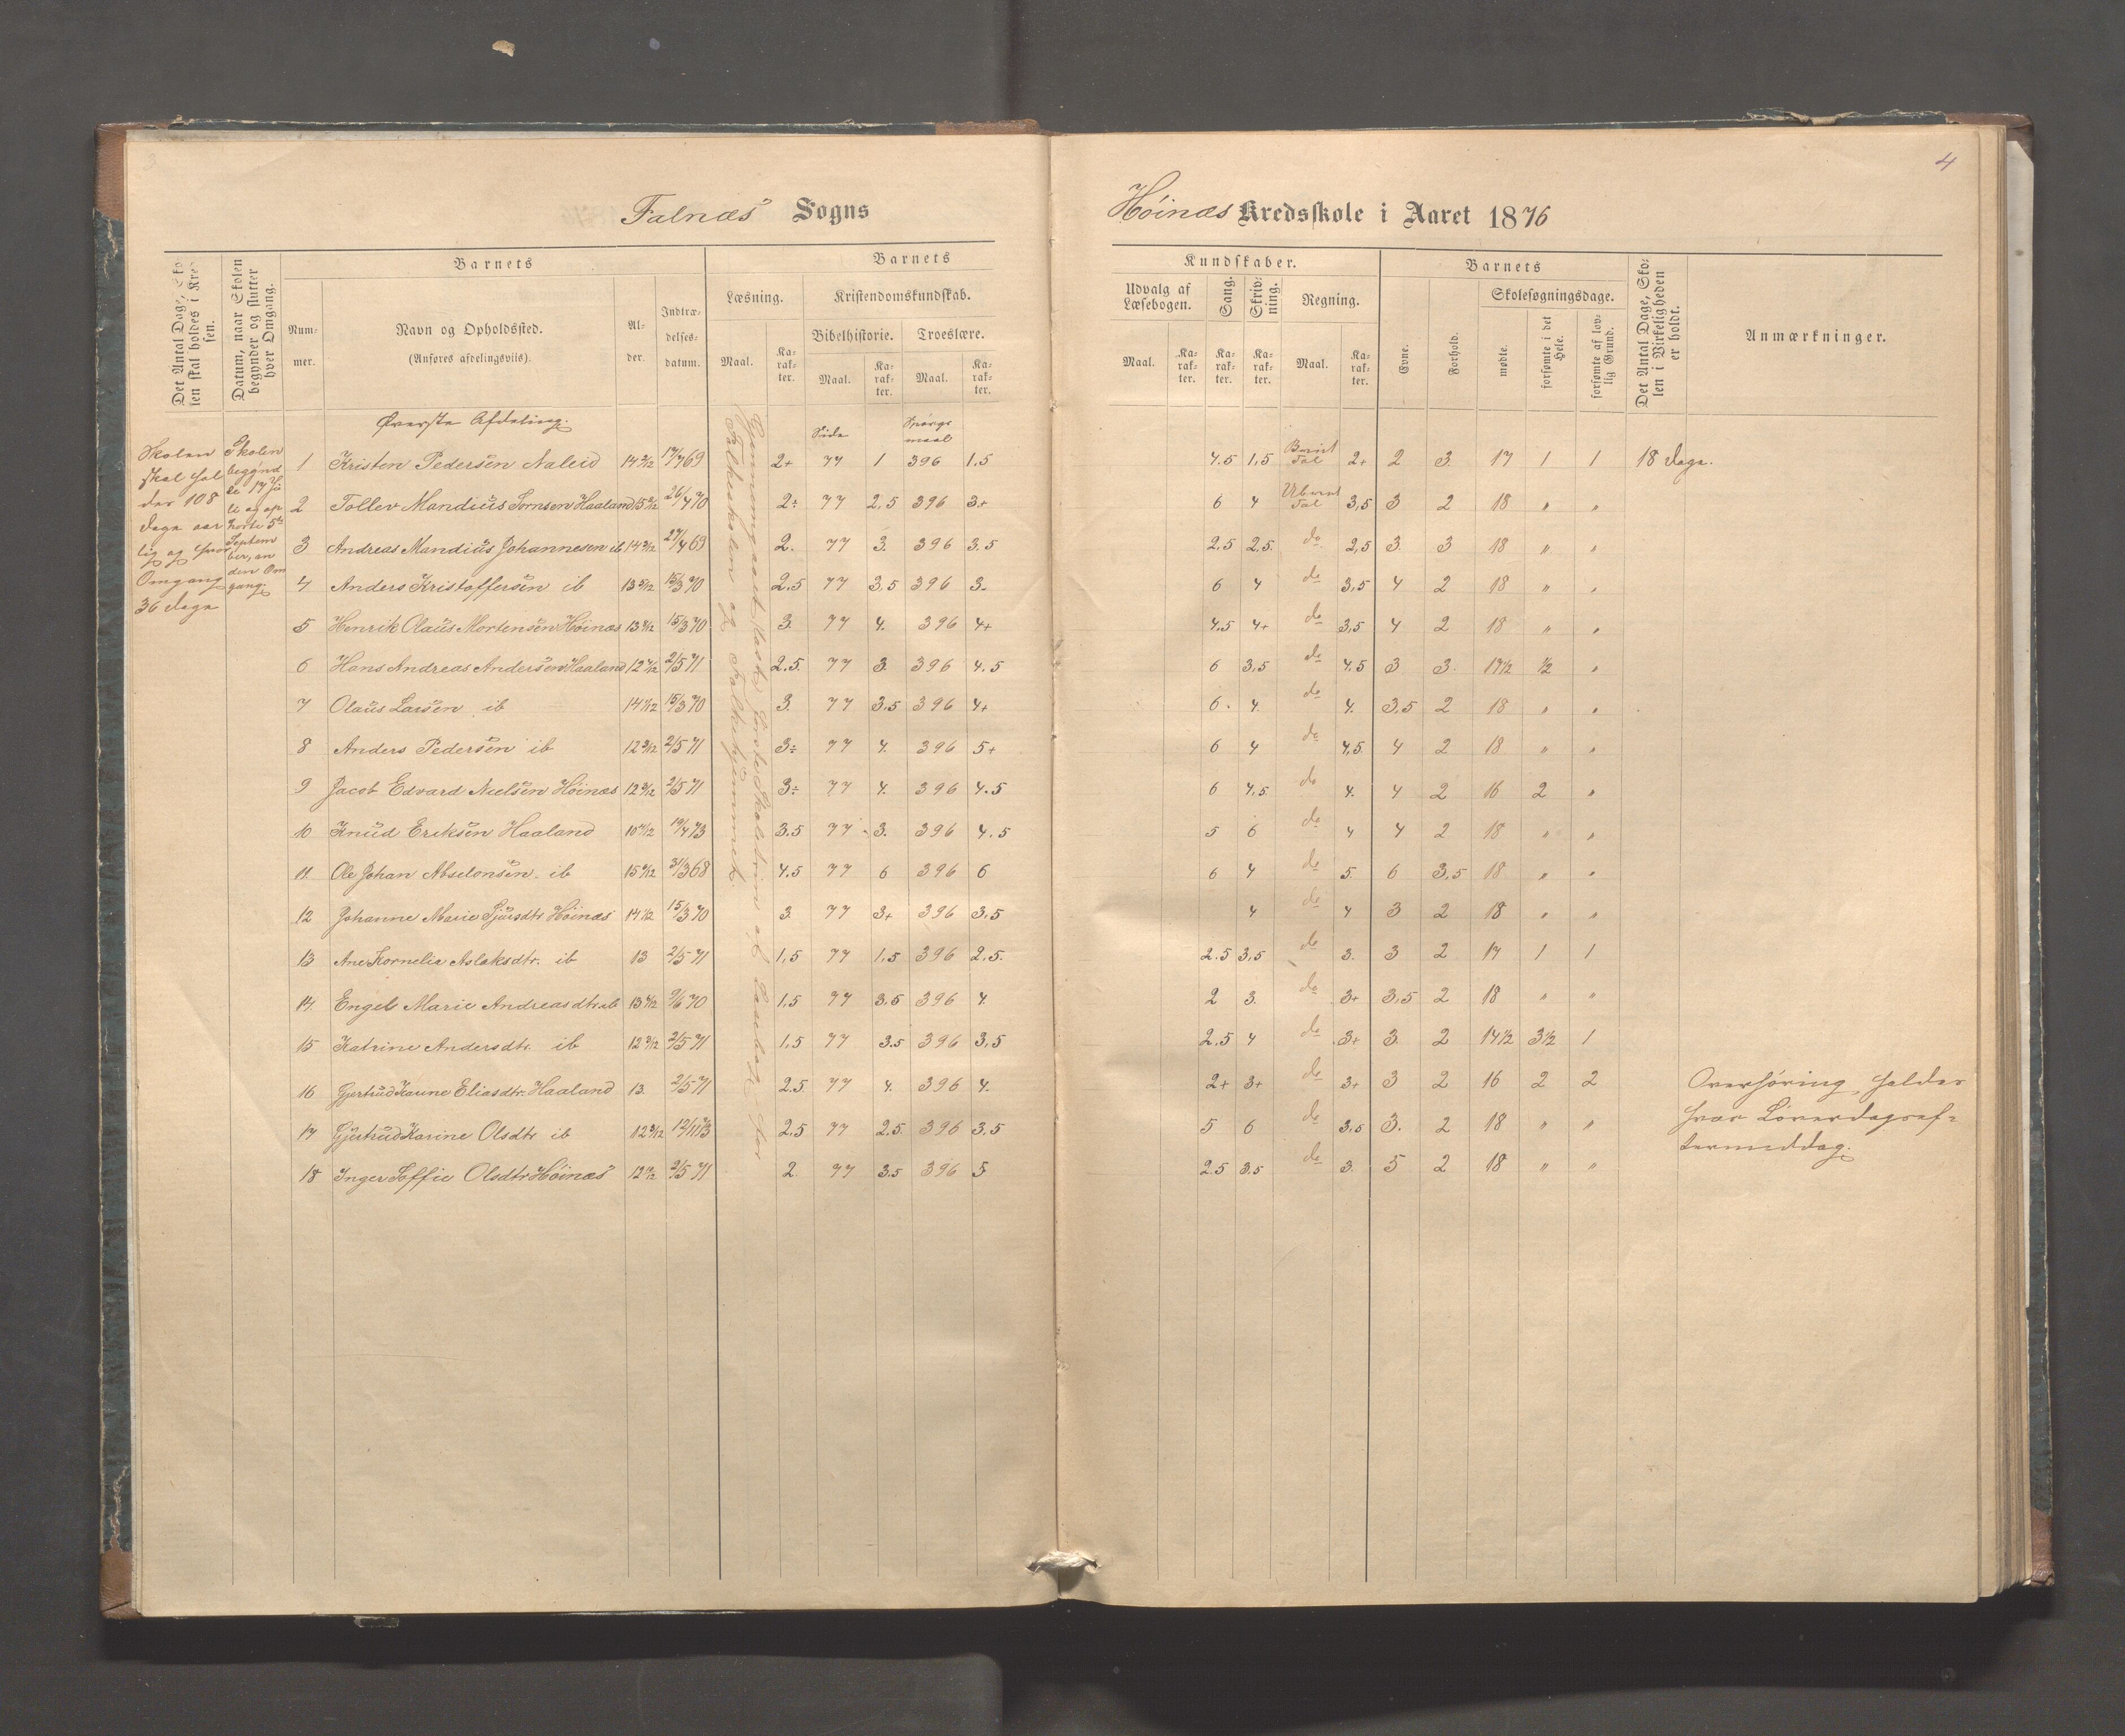 3
4
Falnæs Sogns
Høinæs Kredsskole i Aaret 1876
Det Antal Dage, Sko-
len skal holdes i Kred-
sen.
Datum, naar Skolen
begynder og slutter
hver Omgang.
Barnets
Num-
mer.
Navn og Opholdssted.
(Anføres afdelingsviis).
Al-
der.
Indtræ-
delses-
datum.
Barnets
Læsning.
Maal.
Ka-
rak-
ter.
Kristendomskundskab.
Bibelhistorie.
Troeslære.
Maal.
Ka-
rak-
ter.
Maal.
Ka-
rak-
ter.
Kundskaber.
Udvalg af
Læsebogen.
Maal.
Ka-
rak-
ter.
Sang.
Ka-
rak-
ter.
Skriv-
ning.
Ka-
rak-
ter.
Regning.
Maal.
Ka-
rak-
ter.
Barnets
Evne.
Forhold.
Skolesøgningsdage.
mødte.
forsømte i det
Hele.
forsømte af lov-
lig Grund.
Det Antal Dage, Sko-
len i Virkeligheden
er holdt.
Anmærkninger.
Skolen
skal hol
des 108
Dage aar
lig og hver
Omgang
36 Dage
Skolen
begynd
te 17 Ju
li og op
hørte 5te
Septem
ber, an
den Om
gang.
Øverste Afdeling.
Side
Spørgs
maal
1 Kristen Pedersen Naleid 14 3/12 17/4 69 2+ 77 1 396 1.5 4.5 1,5 Brøk Tal 2+ 2 3. 17 1 1 18 Dage.
2 Tollev Mandius Haaland 26/4 70 2÷ 77 2,5 396 3+ 6 4 Tal 3,5 3 2 18 " "
3 Andreas Mandius Johannesen ib 27/4 69 2. 77 3. 396 3.5 2,5 2,5. do 2,5 3. 3 18 " "
4 Anders Kristoffersen ib 13 5/12 15/3 70 2.5 77 3,5 396 3- 6 4 do 3,5 4 2 18 " "
5 Henrik Olaus Mortensen Høinæs 15/3 70 3. 77 4. 396 4+ 4.5 4+ do 3,5 4 2 18 " "
6 Hans Andreas Andersen Haaland 2/5 71 2.5. 77 3. 396 4.5 6 3,5 do 4.5 3 3. 17 1/2 1/2 "
7 Olaus Larsen ib 15/3 70 3. 77 3,5 396 4+ 6. 4. do 4. 3,5 2 18 " "
8 Anders Pedersen ib 2/5 71 3÷ 77 4. 396 5+ 6 4 do 4,5 4 2 18 " "
9 Jacob Edvard Nielsen Høinæs 2/5 71 3÷ 77 4. 396 4.5 6 4,5. do 4. 4 2 16 2 "
10 Knud Eriksen Haaland 19/4 73 3.5 77 3. 396 4.5 5 6 do 4 4 2 18 " "
11. Ole Johan Abselonsen. ib 31/3 68 4.5 77 6 396 6 6 4 do 5. 6 3,5 18 " "
12 Johanne Marie Sjursdtr Høinæs 15/3 70 3. 77 3+ 396 3,5 4 do 4 3 2 18 " "
13 Ane Kornelia Aslaksdtr. ib 13 2/5 71 1,5 77 1,5 396 2,5. 2.5 3,5 do 3. 3 2 17 1 1
14. Engel Marie Andreasdtr ib 9/6 70 1,5 77 3.5 396 4. 2 3. do 3+ 3,5 2 18 " "
15 Katrine Andersdtr. ib 2/5 71 1,5 77 3.5 396 3,5 2.5 4 do 3+ 3. 2 14 1/2 3 1/2 1
16 Gjertrud Eliasdtr. Haaland 13. 2/5 71 2.5. 77 4. 396 4. 2+ 3+ do 3+ 3 2 16 2 2
17 Gjertrud Karine Olsdtr ib 12/11 73 2.5 77 2.5. 396 3,5 5 6 do 3.5 3. 2 18 " "
18 Inger Soffie Olsdtr Høinæs 2/5 71 2. 77 3.5 396 5 2.5 3.5 do 3. 5 2 18 " "
Overhøring holdes
hver Løverdagsef-
termiddag.